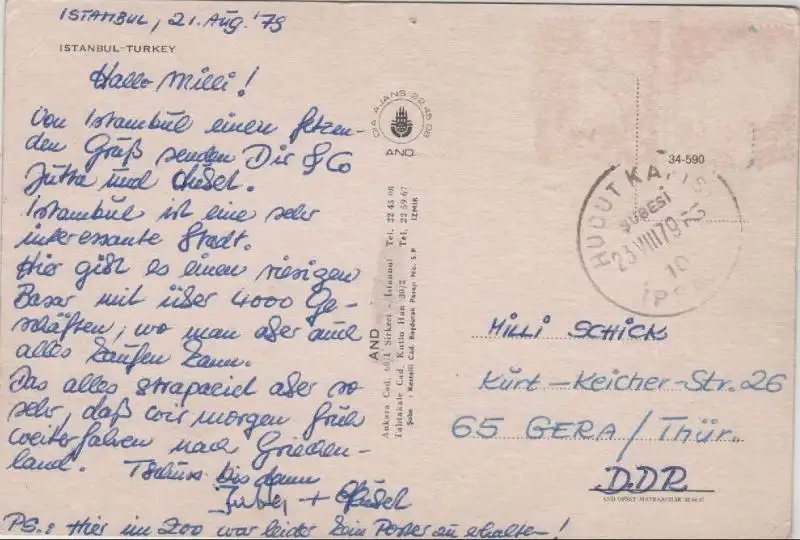 ISTANBUL, 21. Aug. '79
ISTANBUL-TURKEY
Hallo Milli!
Von Istambul einen fetzen-
den Gruß senden Dir & Co
Jutta und
Istambul ist eine sehr
interessante Stadt.
Hier gibt es einen riesigen
Basar mit über 4000 Ge-
schäften, wo man aber auch
alles kaufen kann.
Das alles strapaziert aber so
sehr, daß wir morgen früh
weiterfahren nach Griechen-
land. Tschüss bis dann
+
PS.: Hier im Zoo war leider kein Poster zu erhalten!
AJANS 22 45 08
AND
AND
Ankara Cad. 60/1 Sirkeci - Istanbul Tel. 22 45 08
Tahtakale Cad. Kutlu Han 30/2 Tel. 22 59 67
Şube : Kestelli Cad. Başdurak Pasajı No. 5 P İZMİR
34-590
HUDUT KAPISI
ŞUBESİ
23 VIII 79
10
MILLI SCHICK
Kurt-Keicher-Str. 26
65 GERA/Thür.
DDR
AND OFSET MATBAACILIK